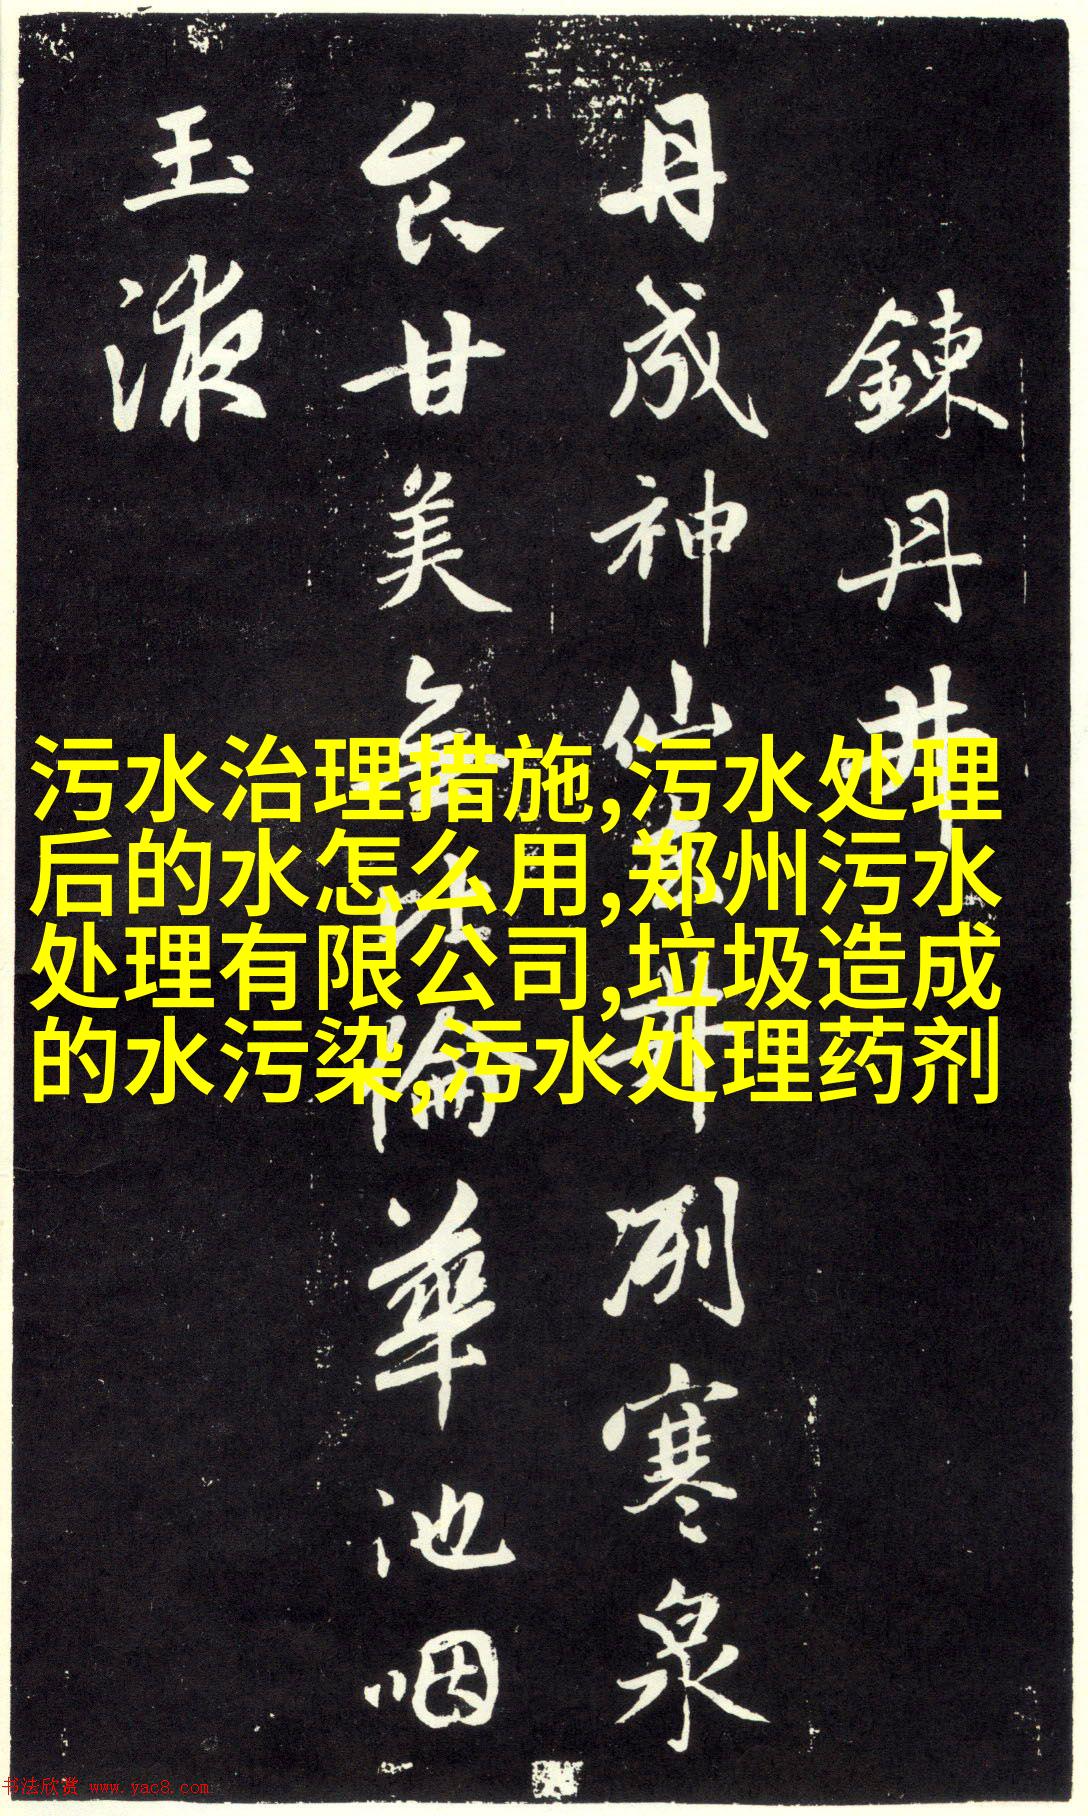 鍊丹井
丹成神仙去井冽寒泉
食甘美無比倫華池咽
玉液
污水治理措施,污水处理
后的水怎么用,郑州污水
处理有限公司,垃圾造成
的水污染,污水处理药剂
书法欣赏 www.yac8.com